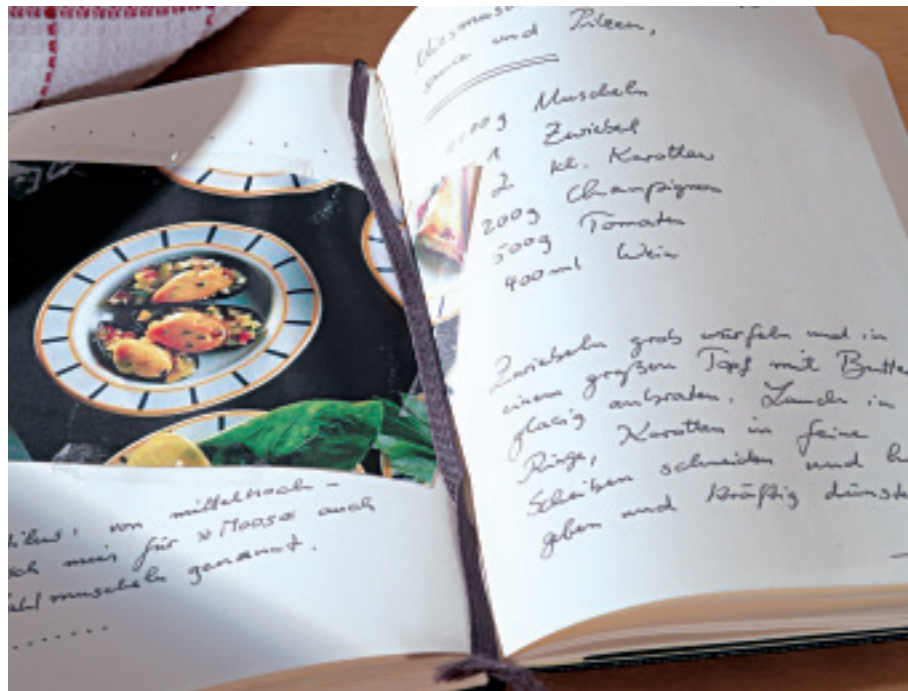 von mittelhoch-
für »Moos« auch
muscheln genannt.
Miesmusc
sauce und Pilzen,
Muscheln
1 Zwiebel
2 kl. Karotten
200g Champignon
500g Tomaten
400ml Wein
Zwiebeln grob würfeln und in
einem großen Topf mit Butter
glasig anbraten. Lauch in
Ringe, Karotten in feine
Scheiben schneiden und
geben und kräftig dünste